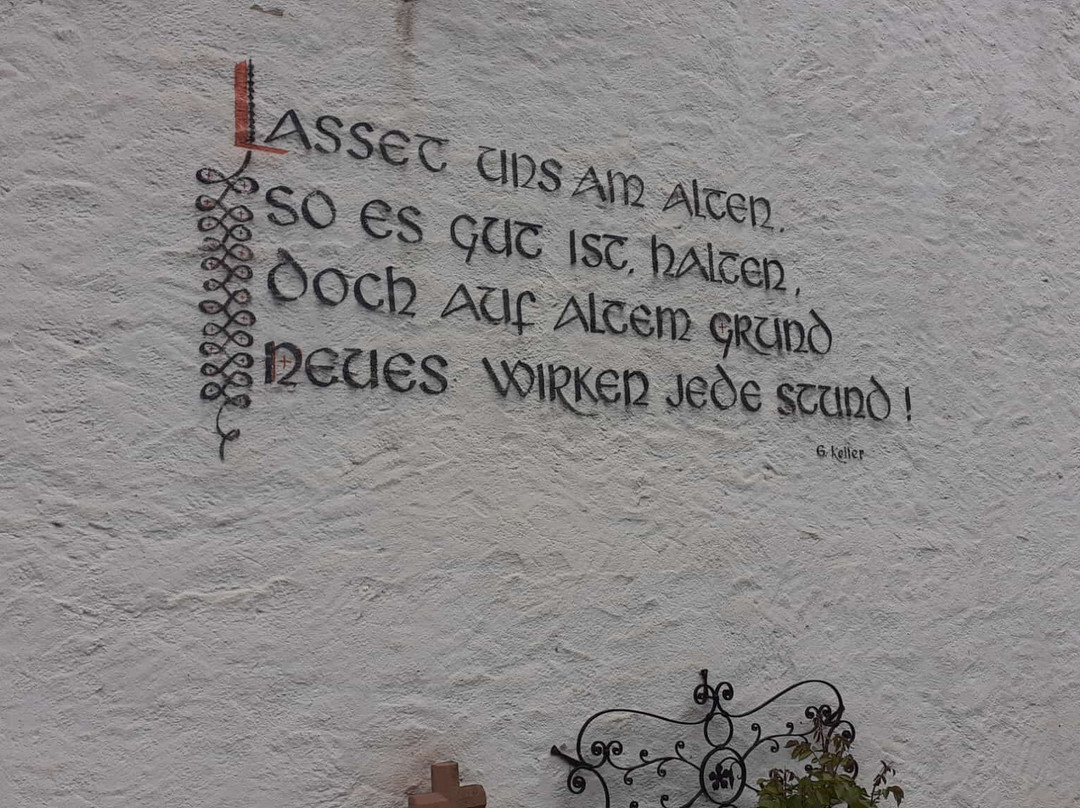 Lasset uns am Alten,
so es gut ist, halten,
doch auf altem Grund
Neues wirken jede Stund!
G. Keller